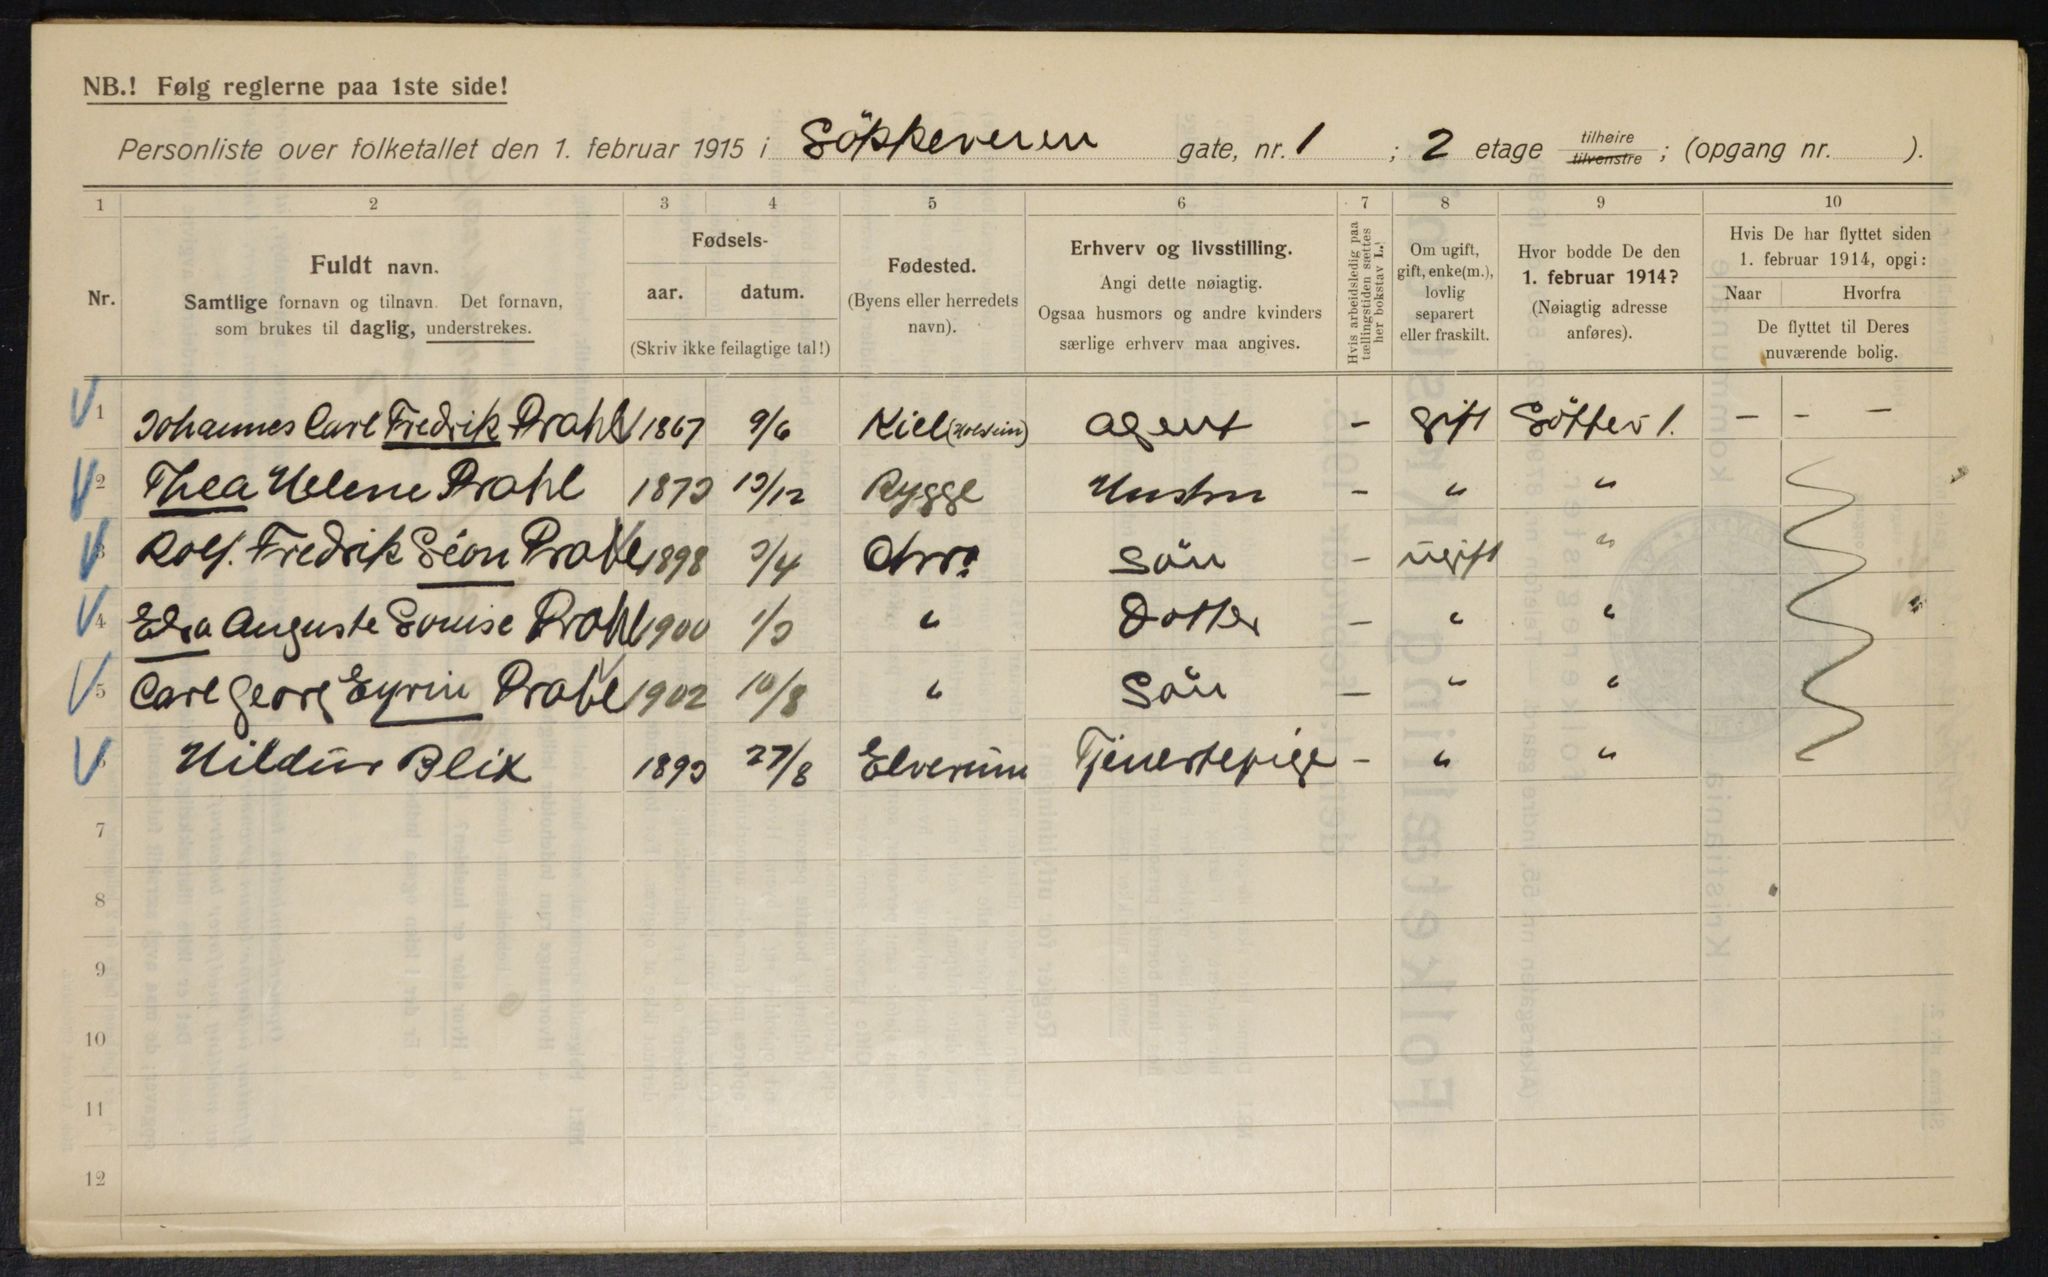 NB.! Følg reglerne paa 1ste side!
Personliste over folketallet den 1. februar 1915 i Sökkeveien gate, nr. 1 ; 2 etage tilhøire tilvenstre ; (opgang nr. ).
1 2 3 4 5 6 7 8 9 10
Nr.
Fuldt navn.
Samtlige fornavn og tilnavn. Det fornavn,
som brukes til daglig, understrekes.
Fødsels-
aar. datum.
(Skriv ikke feilagtige tal!)
Fødested.
(Byens eller herredets
navn).
Erhverv og livsstilling.
Angi dette nøiagtig.
Ogsaa husmors og andre kvinders
særlige erhverv maa angives.
Hvis arbeidsledig paa
tællingstiden sættes
her bokstav L.
Om ugift,
gift, enke(m.),
lovlig
separert
eller fraskilt.
Hvor bodde De den
1. februar 1914?
(Nøiagtig adresse
anføres).
Hvis De har flyttet siden
1. februar 1914, opgi:
Naar Hvorfra
De flyttet til Deres
nuværende bolig.
1 Johannes Carl Fredrik Prahl 1867 9/6 Kiel (Holstein) Agent - gift - - -
2 Thea Helene Prahl 1873 13/12 Rygge Hustru - " "
3 Rolf Fredrik Prahl 1898 3/4 Chra Sön - ugift "
4 Auguste Louise Prahl 1900 1/3 " Dotter - " "
5 Carl Georg Prahl 1902 10/8 " Sön - " "
6 Hildur Blix 1893 27/8 Elverum Tjenestepige - " "
7
8
9
10
11
12